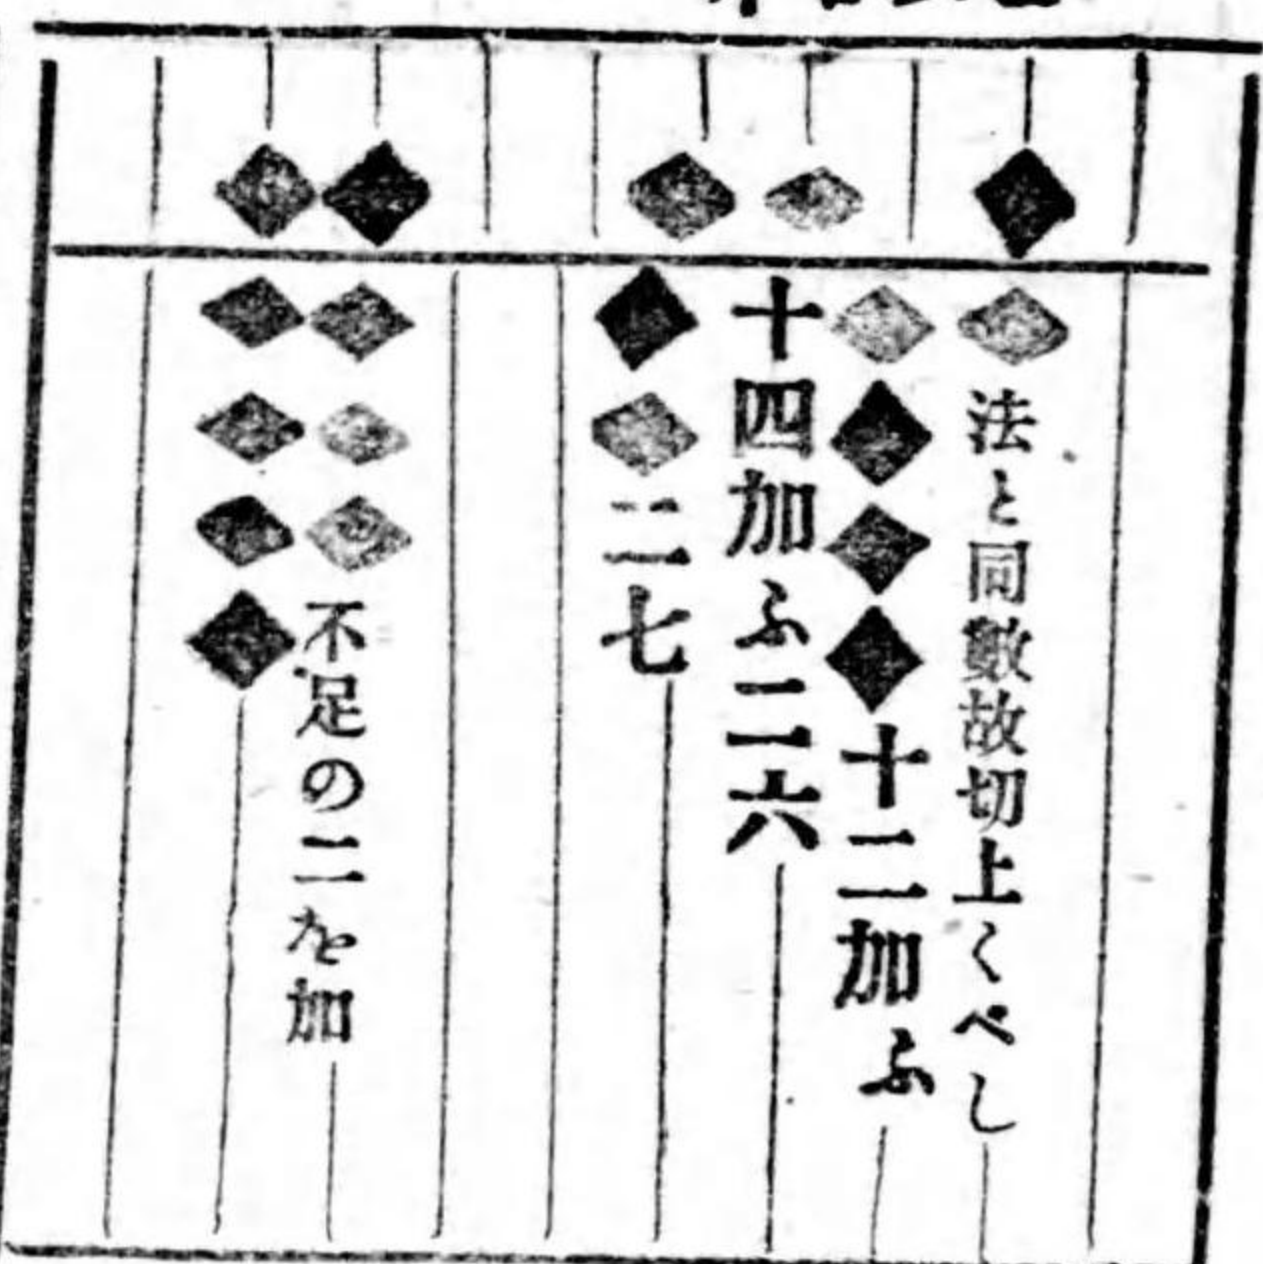 法と同數故切上くべし
十二加ふ
十四加ふ二六
二七
不足の二を加